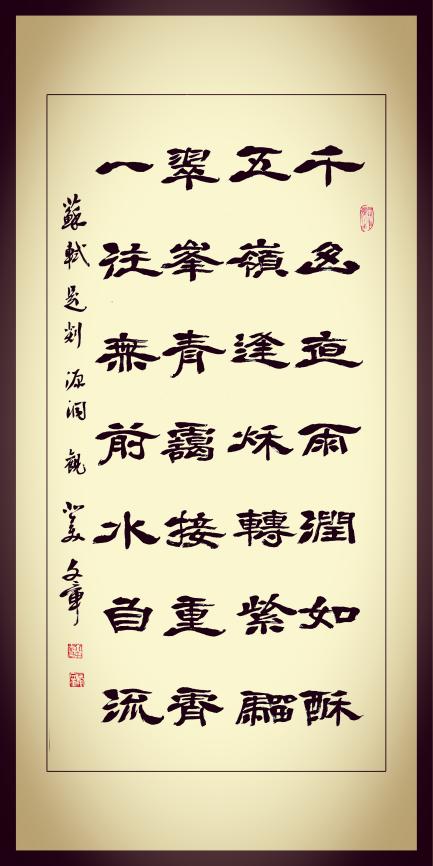 千直雨潤如酥
五嶺逢轉紫騮
翠峯青靄接重霄
一往無前水自流
蘇軾剡源觀文章